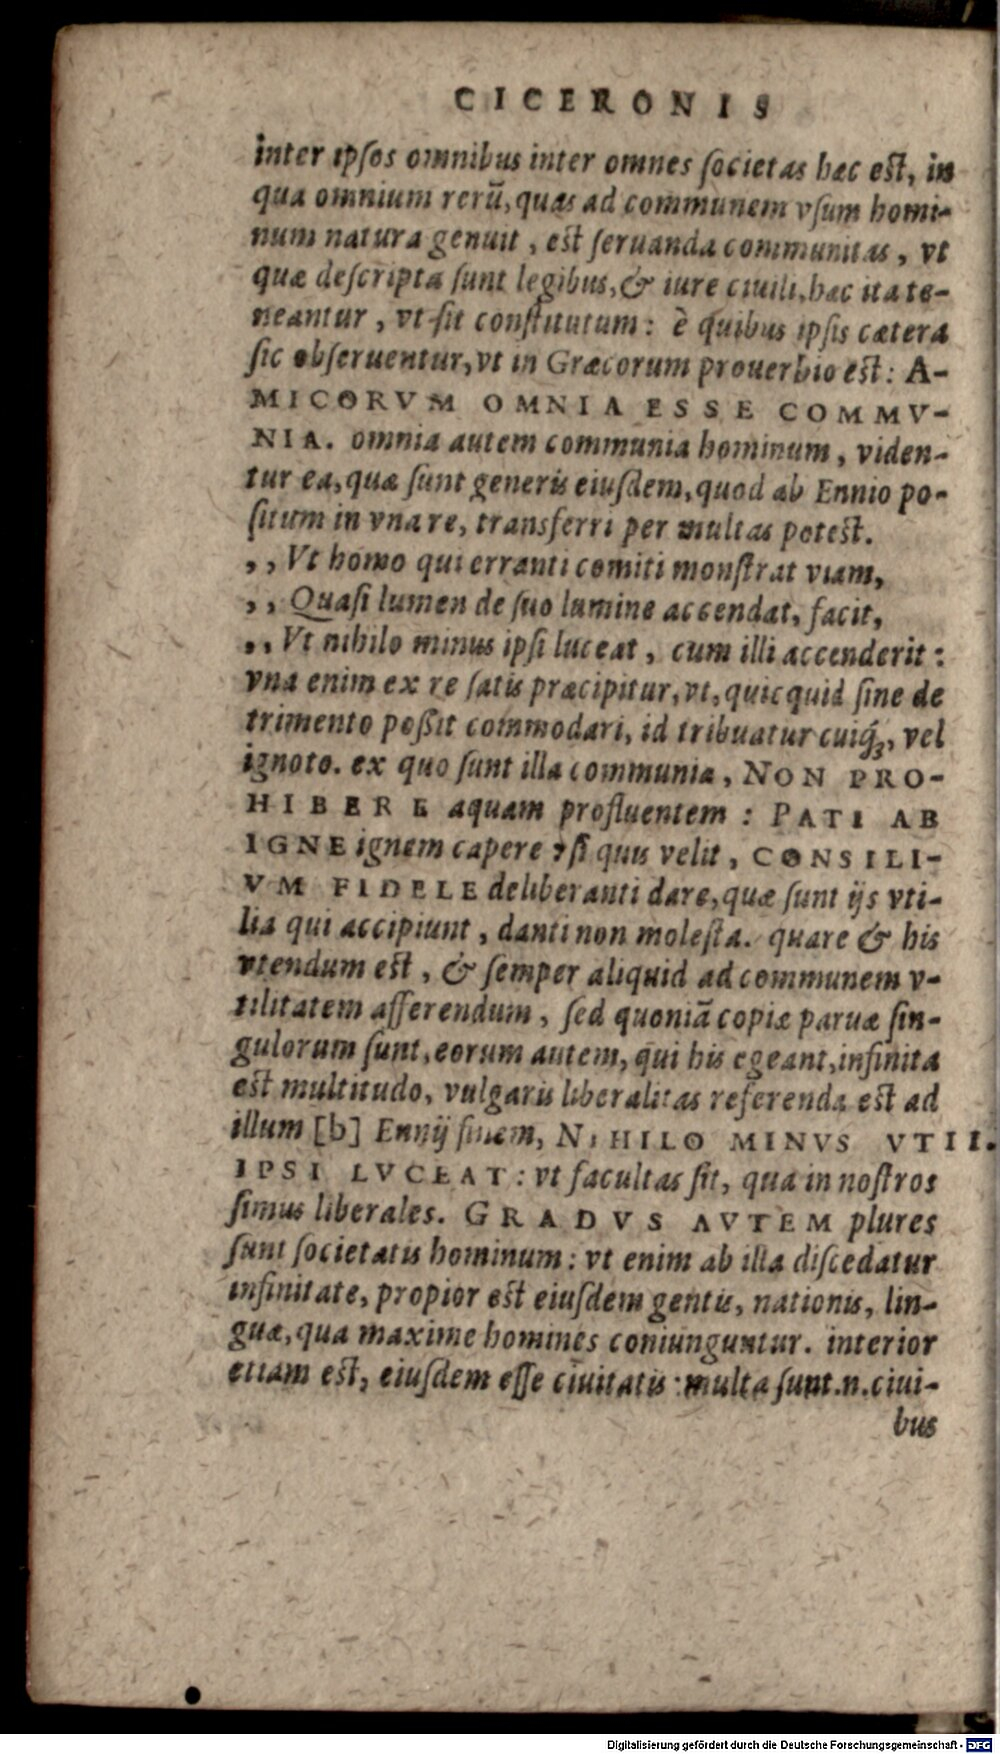 CICERONIS
inter ipsos omnibus inter omnes societas hæc est, in
qua omnium rerū, quas ad communem vsum homi-
num natura genuit, est seruanda communitas, vt
quæ descripta sunt legibus, & iure ciuili, hæc ita te-
neantur, vt sit constitutum: è quibus ipsis cætera
sic obseruentur, vt in Græcorum prouerbio est: A-
MICORVM OMNIA ESSE COMMV-
NIA. omnia autem communia hominum, viden-
tur ea, quæ sunt generis eiusdem, quod ab Ennio po-
situm in vna re, transferri per multas potest.
,, Vt homo qui erranti comiti monstrat viam,
,, Quasi lumen de suo lumine accendat, facit,
,, Vt nihilo minus ipsi luceat, cum illi accenderit:
vna enim ex re satis præcipitur, vt, quicquid sine de
trimento poßit commodari, id tribuatur cuiq́;, vel
ignoto. ex quo sunt illa communia, NON PRO-
HIBERE aquam profluentem: PATI AB
IGNE ignem capere, si quis velit, CONSILI-
VM FIDELE deliberanti dare, quæ sunt ijs vti-
lia qui accipiunt, danti non molesta. quare & his
vtendum est, & semper aliquid ad communem v-
tilitatem afferendum, sed quoniā copiæ paruæ sin-
gulorum sunt, eorum autem, qui his egeant, infinita
est multitudo, vulgaris liberalitas referenda est ad
illum [b] Ennij finem, NIHILO MINVS VTII.
IPSI LVCEAT: vt facultas sit, qua in nostros
simus liberales. GRADVS AVTEM plures
sunt societatis hominum: vt enim ab illa discedatur
infinitate, propior est eiusdem gentis, nationis, lin-
guæ, qua maxime homines coniunguntur. interior
etiam est, eiusdem esse ciuitatis: multa sunt.n. ciui-
bus
Digitalisierung gefördert durch die Deutsche Forschungsgemeinschaft - DFG